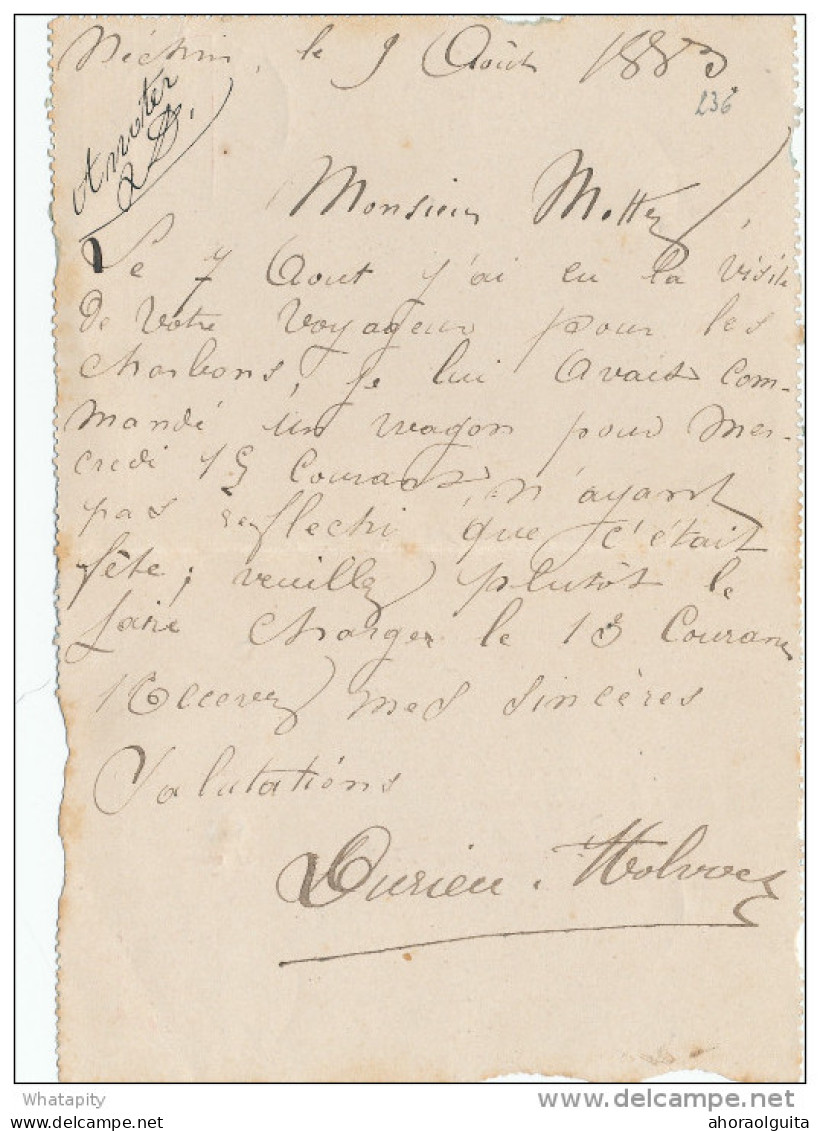 Néchin, le 9 Août 1883
236
Annoter
Monsieur Motte,
Le 7 Aout j'ai eu la visite
de votre voyageur pour les
charbons, je lui Avais com-
mandé un wagon pour Mer-
credi 15 Courant, n'ayant
pas reflechi que c'était
fête; veuillez plutôt le
faire charger le 13 Courant
Recevez mes sincères
Salutations
Durieu
Whatapity
delcampe.net
ahoraolguita